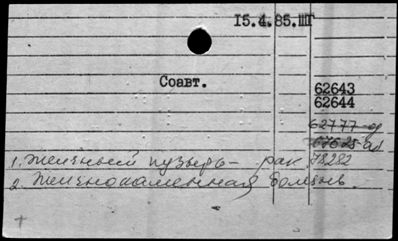 15.4.85.ШГ
Соавт.
62643
62644
62777-д
67625-ал
1. Желчный пузырь - рак. 78282
2. Желчнокаменная болезнь.